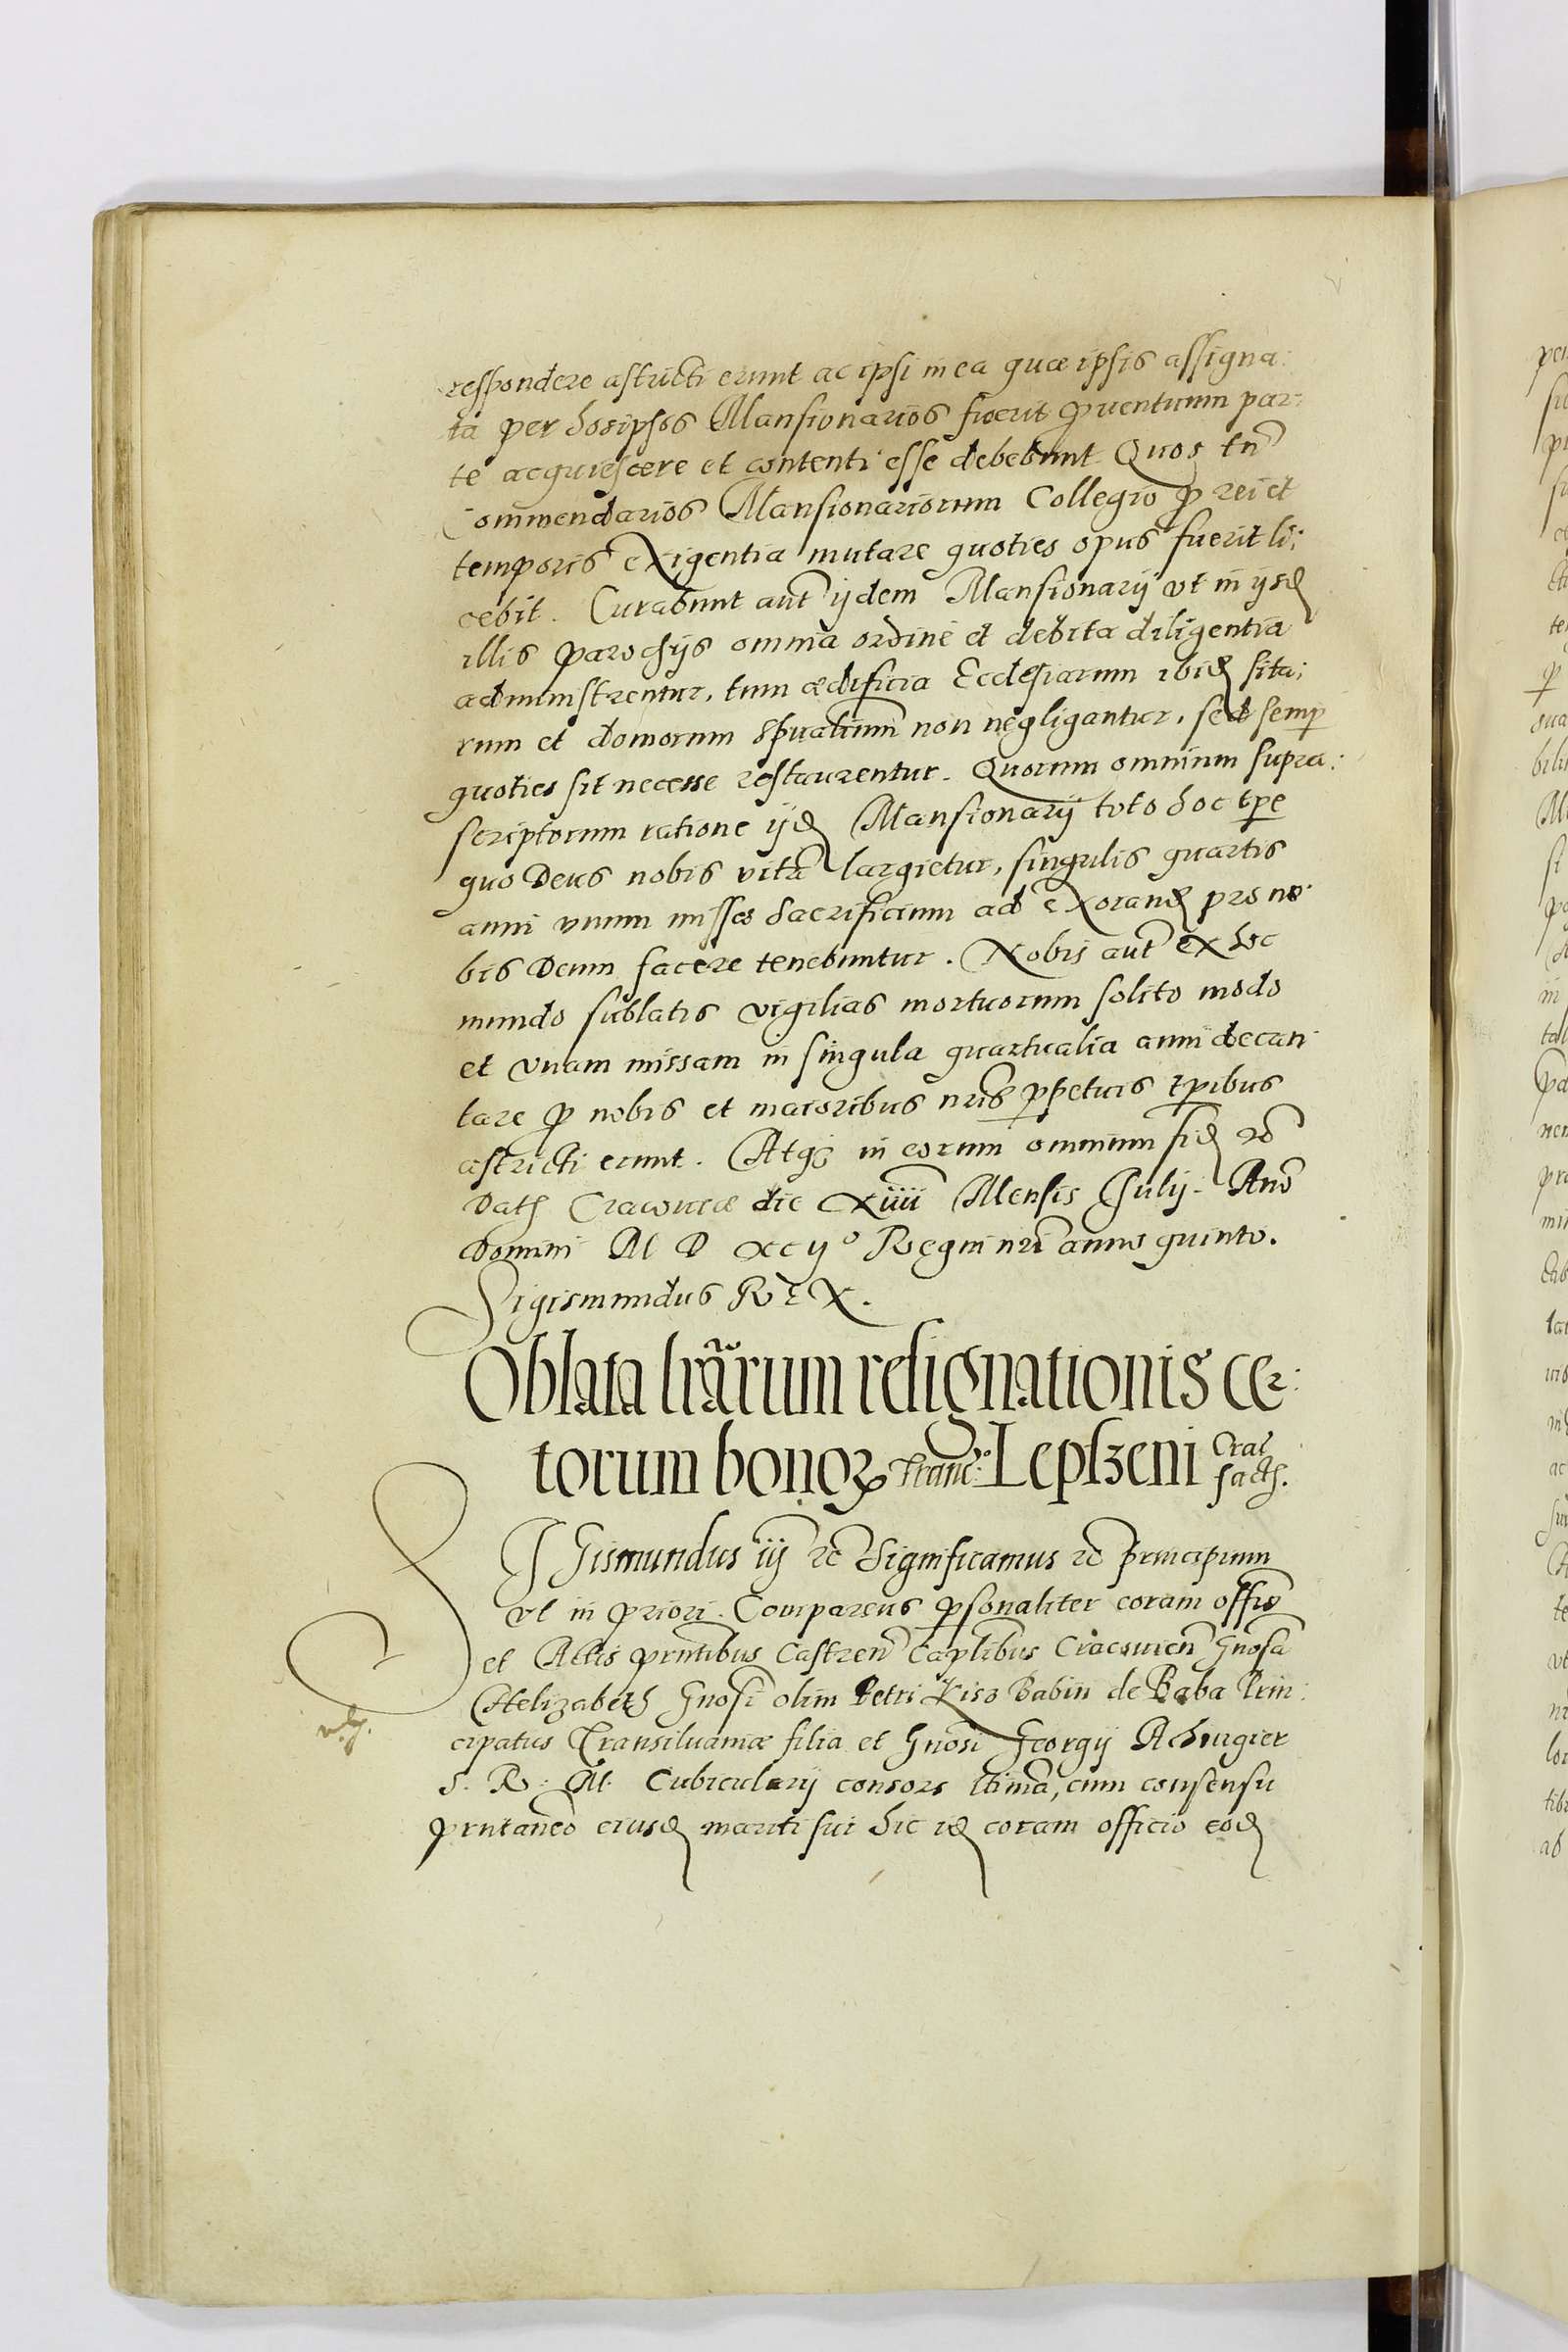 respondere astricti erunt ac ipsi in ea quæ ipsis assigna:
ta per hos ipsos Mansionarios fuerit ꝓuentuum par:
te acquiescere et contenti esse debebunt Quos tn̄
Commendarios Mansionariorum Collegio ꝓ rei et
temporis exigentia mutare quoties opus fuerit li:
cebit. Curabunt aut̄ ijdem Mansionarij vt in ijsd
illis parochijs omnia ordine et debita diligentia
administrentur, tum ædificia Ecclesiarum ibid sita:
rum et domorum spūalium non negligantur, sed semꝑ
quoties sit necesse restaurentur. Quorum omnium supra:
scriptorum ratione ijd Mansionarij toto hoc tp̄e
quo Deus nobis vitā largietur, singulis quartis
anni vnum missæ sacrificium ad exorand pro no:
bis Deum facere tenebuntur. Nobis aut̄ ex hoc
mundo sublatis vigilias mortuorum solito modo
et vnam missam in singula quartualia anni decan:
tare ꝓ nobis et maioribus nr̄is ꝑpetuis tp̄ibus
astricti erunt. Atqȝ in eorum omnium fid &c
Dat Cracouiæ die xiiii Mensis Julij. Anō
Domini M D xcij° Regni nr̄i anno quinto.
Sigismundus Rex.
Oblata lrārum resignationis cer:
torum bonoꝝ Franc: Lepszeni
SIGismundus iij &c Significamus &c principium
vt in priori. Comparens ꝑsonaliter coram officō
et Actis prn̄tibus Castren̄ Capt̄libus Cracouien̄ Gnōsa
Helizabeth Gnōsi olim Petri Kisz Babin de Baba Prin:
cipatus Transiluaniæ filia et Gnōsi Georgij
S. R. M. Cubicularij consors l̄tima, cum consensu
prn̄taneo eiusd mariti sui hic id coram officio eod